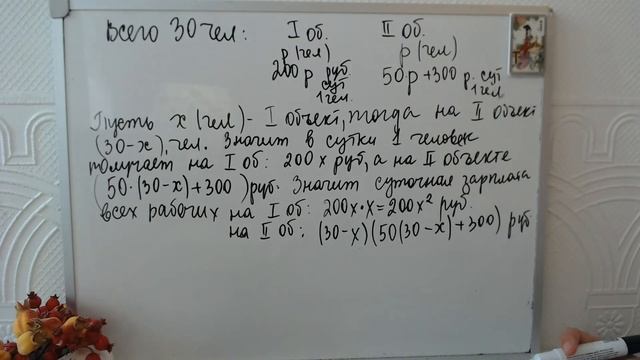 Всего 30 чел: I об. II об.
р (чел) р (чел)
200р руб сут 1 чел. 50р+300 р. сут 1 чел
Пусть х (чел) - I объект, тогда на II объект
(30-х), чел. Значит в сутки 1 человек
получает на I об: 200х руб, а на II объекте
(50·(30-х)+300) руб. Значит суточная зарплата
всех рабочих на I об: 200х·х=200х² руб.
на II об: (30-х)(50(30-х)+300) руб